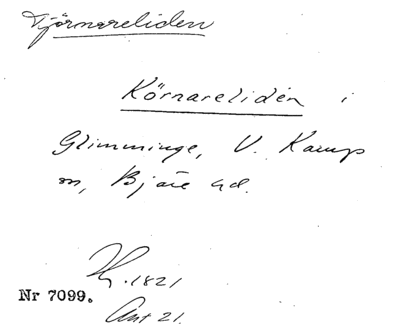 Tjörnareliden
Körnareliden i
Glimminge, V. Karup
sn, Bjäre hd.
Hz. 1821
Nr 7099.
Ant 21.